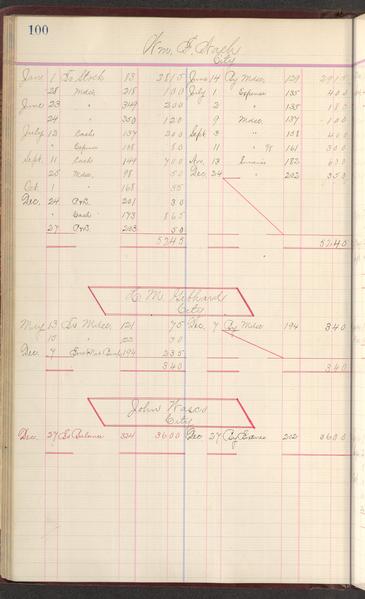 100
Wm. F.
City
June 1 To Stock 13 2815 June 14 By Mdse. 129 2915
28 Mdse. 218 100 July 1 Expense 135 400
June 23 " 349 200 2 " 135 185
24 " 350 120 9 Mdse. 137 100
July 12 Cash 137 200 Sept 3 " 158 400
" Expense 138 80 11 " 161 300
Sept. 11 Cash 144 700 Nov. 13 182
25 Mdse. 98 50 Dec. 24 " 202 350
Oct. 1 " 168 35
Dec. 24 201 30
" Cash 173 865
27 203 50
5245 5245
City
May 13 To Mdse. 121 75 Dec. 7 By Mdse 194 340
15 " 122 30
Dec. 7 194 235
340 340
John Wasco
City
Dec. 27 To Balance 324 3600 Dec. 27 By 202 3600